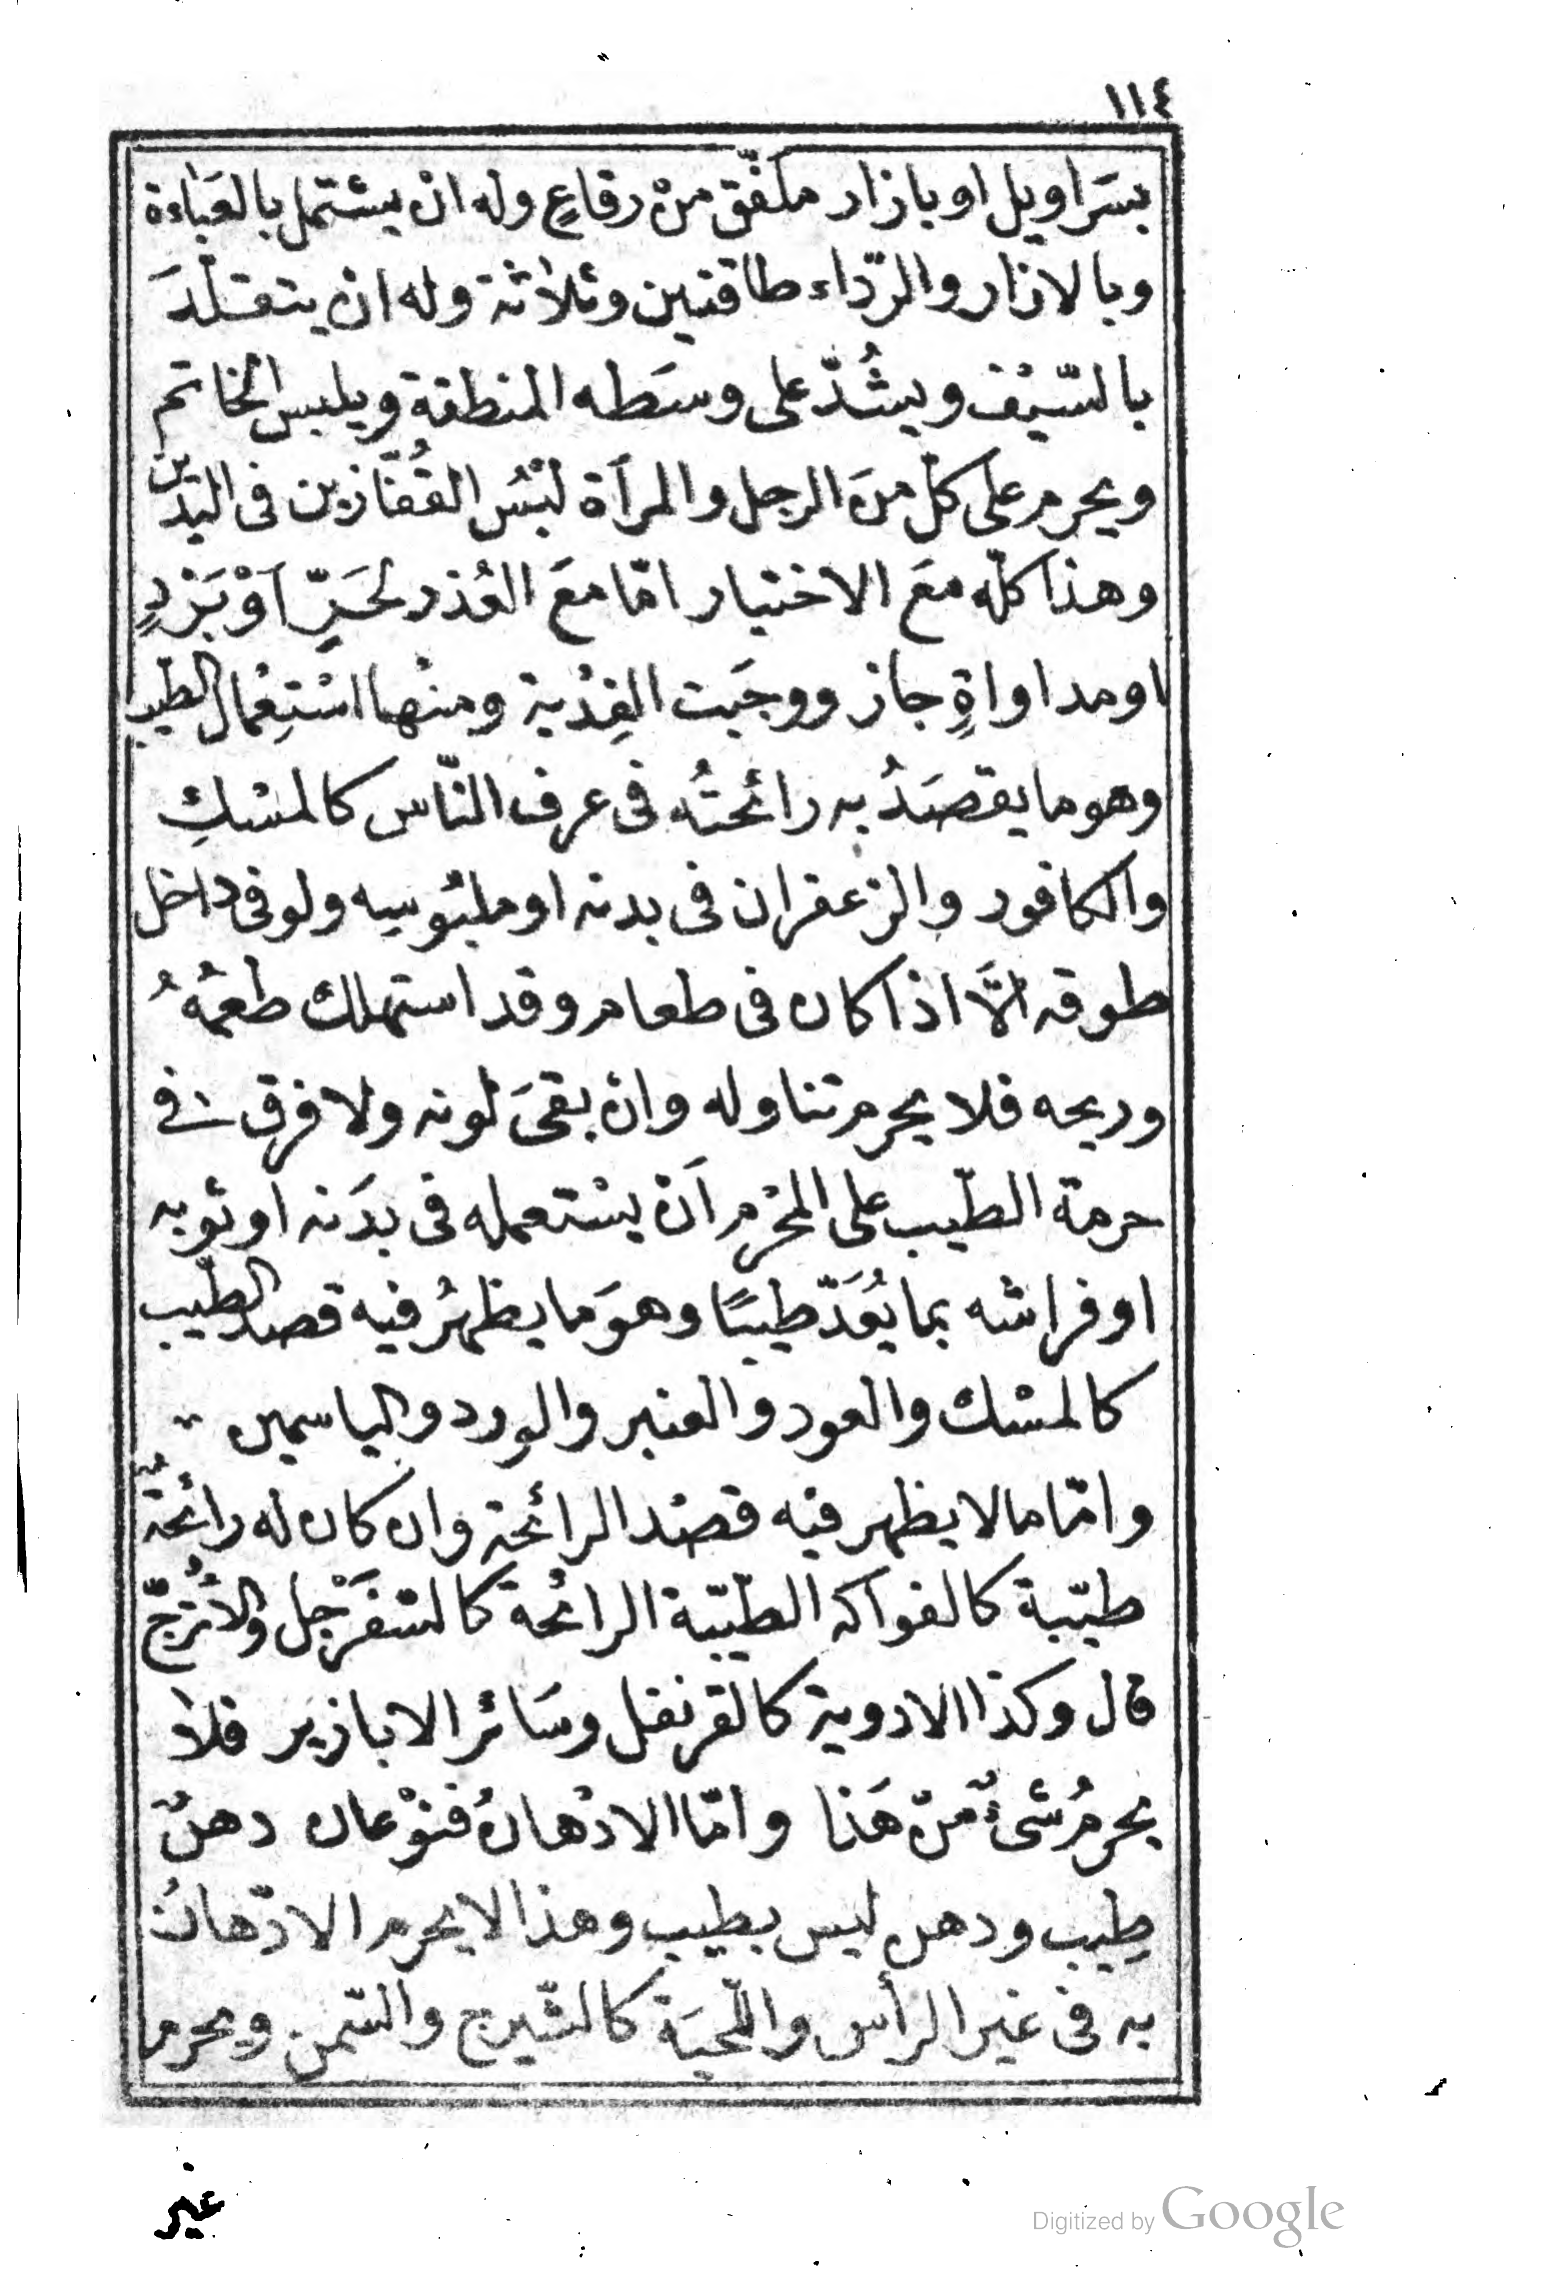 ١١٤
بسَراويل او بازار ملفّق منْ رقاعٍ وله انْ يشتمل بالعَباءة
وبالازار والرّداء طاقتين وثلاثة وله ان يتقلّدَ
بالسّيْف ويشُدّ على وسَطه المنطقة ويلبس الخاتم
ويحرم على كلّ منَ الرجل والمرأة لبْسُ القُفّازين فى اليَدين
وهذا كلّه معَ الاختيار امّا معَ العُذر لحَرٍّ اَوْ بَرْدٍ
او مداواةٍ جاز ووجَبت الفِدْية ومنْها اسْتِعْمال الطّيب
وهو ما يقْصَدُ به رائحتُه فى عرف النّاس كالمسْكِ
والكافور والزعفران فى بدنه او ملبُوسِه ولو فى داخل
طوقه الَّا اذا كان فى طعام وقد استهلك طعْمُهُ
وريحه فلا يحرم تناوله وانْ بقىَ لونه ولا فرق فى
حرمة الطّيب على المحْرم اَنْ يسْتعمله فى بدَنه او ثوبه
او فراشه بما يُعَدّ طيبًا وهوَ ما يظهرُ فيه قصد الطّيب
كالمسْك والعود والعنبر والورد والياسمين
وامّا ما لا يظهر فيه قصْد الرائحة وان كان له رائحةٌ
طيّبة كالفواكه الطّيّبة الرائحة كالسّفرْجل والاُتْرجّ
قال وكذا الادوية كالقرنفل وسَائر الابازير فلا
يحرمُ شئٌ منْ هَذا وامّا الادْهانُ فنوْعان دهنٌ
طِيب ودهن ليس بطيب وهذا لا يحرم الادّهانُ
به فى غير الرأس واللّحيَة كالشّيرج والسّمن ويحرم
غير
Digitized by Google